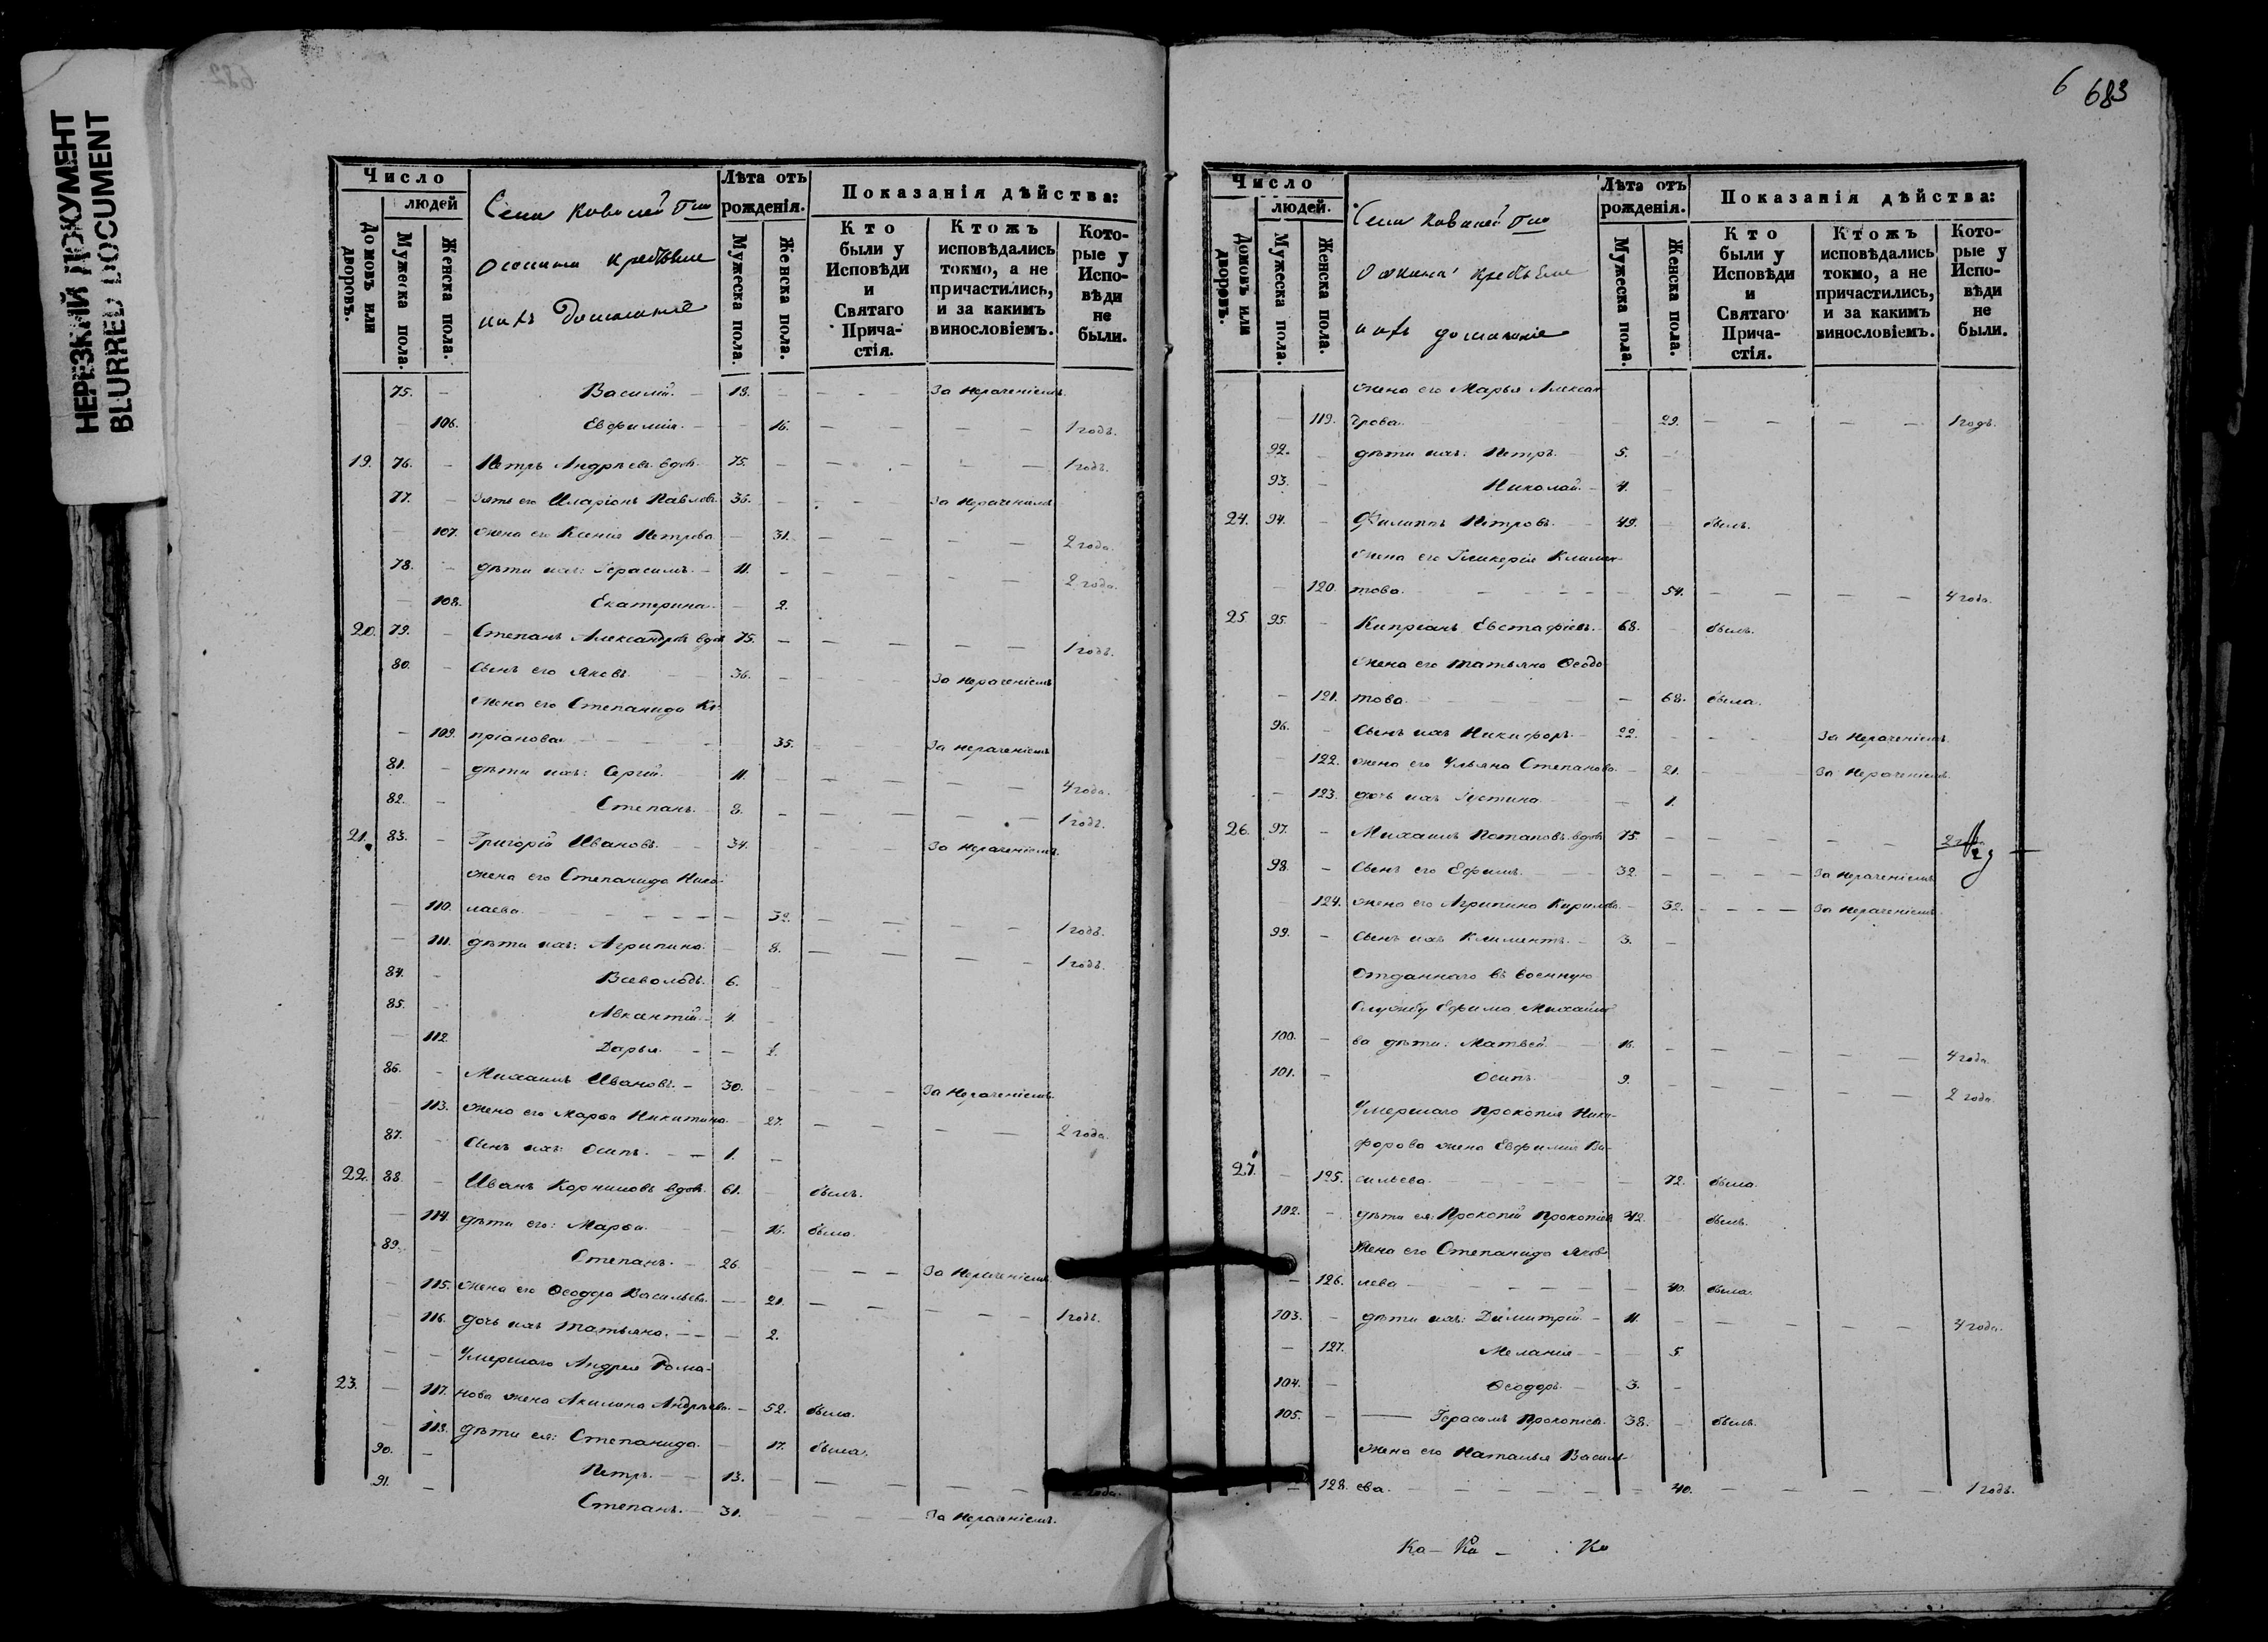 НЕРЕЗКИЙ ДОКУМЕНТ
BLURRED DOCUMENT
Число
людей
Домовъ или дворовъ.
Мужеска пола.
Женска пола.
Села
крестьяне
ихъ домашніе
Лѣта отъ рожденія.
Мужеска пола.
Женска пола.
Показанія дѣйства:
Кто были у Исповѣди и Святаго Прича-стія.
Ктожъ исповѣдались токмо, а не причастились, и за какимъ винословіемъ.
Кото-рые у Испо-вѣди не были.
75. – Василій. 19. – За нераченіемъ.
– 106. Евфимія. – 16. 1 годъ.
19. 76. – Петръ Андреевъ вдов. 75. – 1 годъ.
77. – Зять его Иларіонъ Павловъ. 36. – За нераченіемъ
– 107. Жена его Ксенія Петрова – 31. 2 года.
78. – дѣти ихъ: Герасимъ. 11. – 2 года.
– 108. Екатерина. – 2.
20. 79. – Степанъ Александровъ вдов 75. – 1 годъ.
80. – Сынъ его Яковъ. 36. – За нераченіемъ
Жена его Степанида Ки-
– 109. пріанова 35. За нераченіемъ
81. – дѣти ихъ: Сергій. 11. – 4 года.
82. – Степанъ. 8. – 1 годъ.
21. 83. – Григорій Ивановъ. 34. – За нераченіемъ.
Жена его Степанида Нико-
– 110. лаева. – 32. 1 годъ.
– 111. дѣти ихъ: Агрипина. – 8. 1 годъ.
84. – Всеволодъ. 6. –
85. – Авксентій. 4. –
– 112. Дарья. –
86. – Михаилъ Ивановъ. 30. – За нераченіемъ.
– 113. Жена его Марѳа Никитина – 27. 2 года.
87. – Сынъ ихъ: Осипъ. 1. –
22. 88. – Иванъ Корниловъ вдов. 61. – былъ.
– 114. дѣти его: Марѳа. – 16. была.
89. – Степанъ. 26. – За нераченіемъ
– 115. Жена его Ѳеодора Васильева. – 21. 1 годъ.
– 116. дочь ихъ Татьяна. – 2.
– – Умершаго Андрея Рома-
23. – 117. нова жена Акилина Андреева. – 52. была.
– 118. дѣти ея: Степанида. – 17. была.
90. – Петръ. 13. – 2 года.
91. – Степанъ. 31. – За нераченіемъ.
6 683
Число
людей.
Домовъ или дворовъ.
Мужеска пола.
Женска пола.
Села
крестьяне
ихъ домашніе
Лѣта отъ рожденія.
Мужеска пола.
Женска пола.
Показанія дѣйства:
Кто были у Исповѣди и Святаго Прича-стія.
Ктожъ исповѣдались токмо, а не причастились, и за какимъ винословіемъ.
Кото-рые у Испо-вѣди не были.
Жена его Марья Алексан
– 119. дрова. – 29. 1 годъ.
92. – дѣти ихъ: Петръ. 5. –
93. – Николай. 4. –
24. 94. – Филиппъ Петровъ. 49. – былъ.
Жена его Гликерія Климен-
– 120. това. – 54. 4 года.
25 95. – Кипріанъ Евстафіевъ. 68. – былъ.
Жена его Татьяна Ѳеодо
– 121. това. – 68. была.
96. – Сынъ ихъ Никифоръ. 22. – За нераченіемъ.
– 122. Жена его Ульяна Степанова. – 21. За нераченіемъ.
– 123. дочь ихъ Іустина – 1.
26. 97. – Михаилъ Потаповъ вдов. 75. –
98. – Сынъ его Ефимъ. 32. – За нераченіемъ
124. Жена его Агрипина Кирилова. – 32. За нераченіемъ.
99. – Сынъ ихъ Климентъ. 3. –
Отданнаго въ военную
Службу Ефима Михайло
100. – ва дѣти: Матвей. 16. – 4 года.
101. – Осипъ. 9. – 2 года.
Умершаго Прокопія Ники-
форова жена Евфимія Ва-
27. – 125. сильева. – 72. была.
102. – дѣти ея: Прокопій Прокопіевъ 42. былъ.
Жена его Степанида Яков-
– 126. лева – 40. была.
103. – дѣти ихъ: Димитрій – 11. – 4 года.
– 127. Меланія – 5
104. – Ѳеодоръ. 3. –
105. – Герасимъ Прокопіев. 38. – былъ.
Жена его Наталья Василь-
– 128. ева. – 40. 1 годъ.